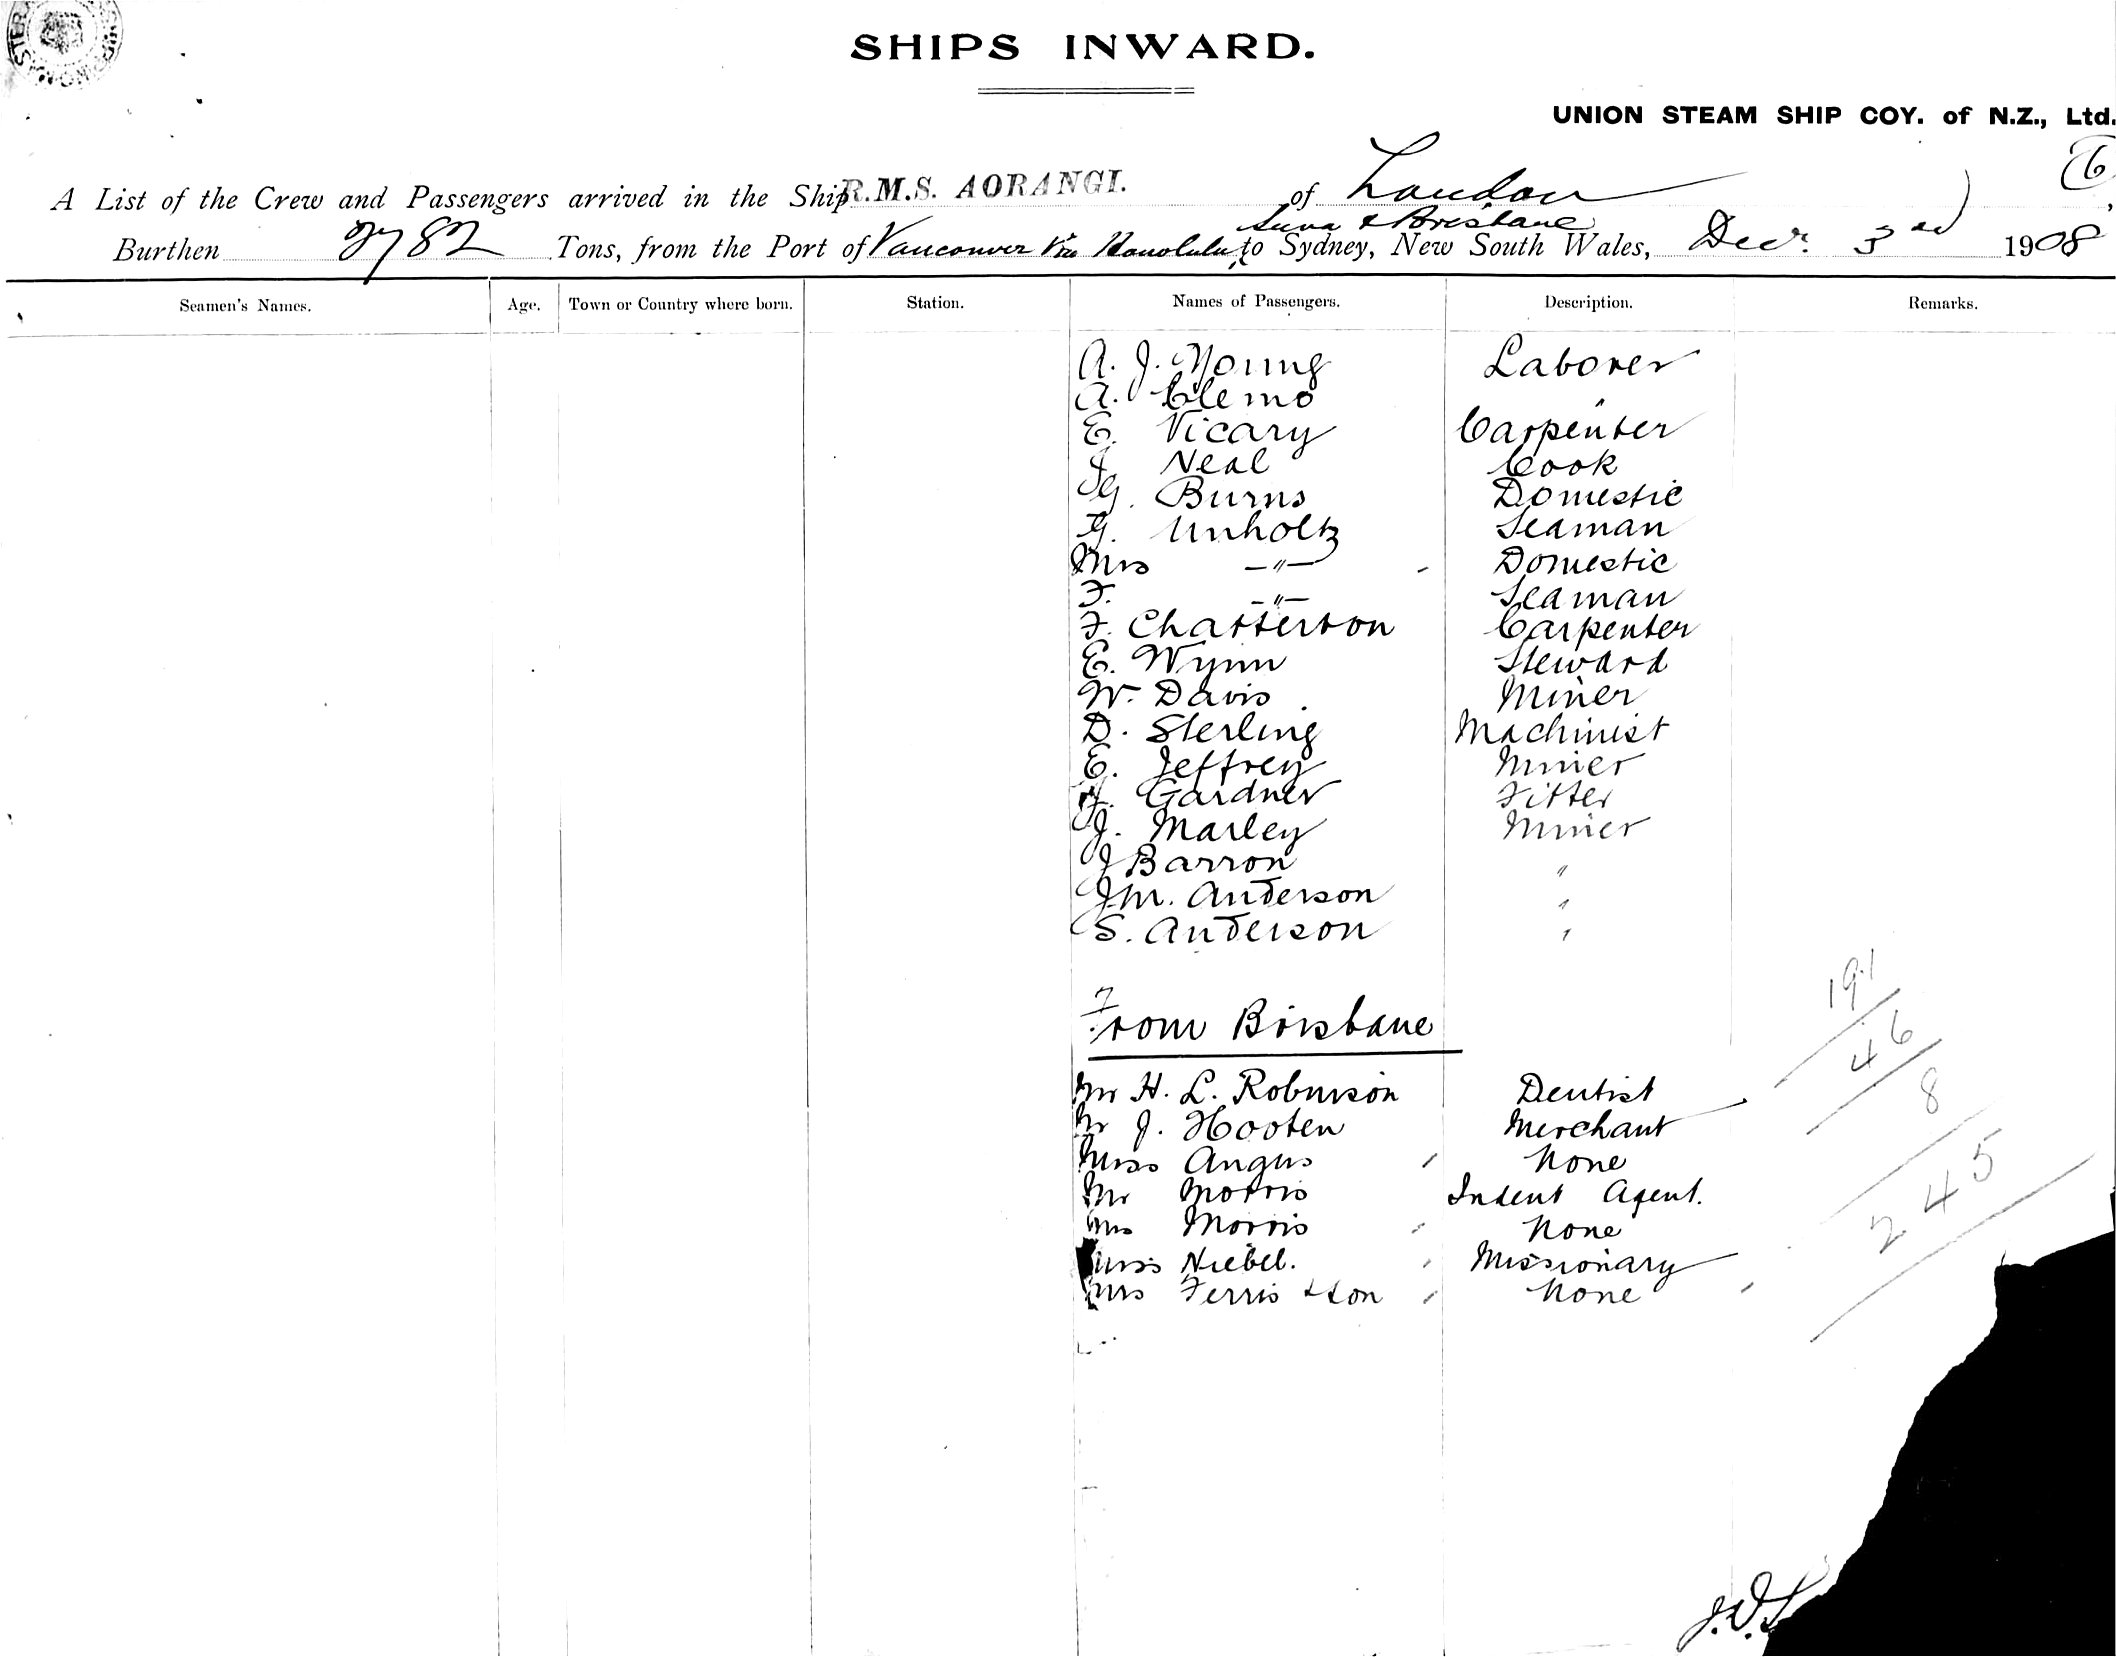 SHIPS INWARD.
UNION STEAM SHIP COY. of N.Z., Ltd.
6
A List of the Crew and Passengers arrived in the Ship R.M.S. AORANGI. of London
Suva & Brisbane
Burthen 2782 Tons, from the Port of Vancouver via Honolulu, to Sydney, New South Wales, Decr. 3rd 1908
Seamen's Names. Age. Town or Country where born. Station. Names of Passengers. Description. Remarks.
A. J. Young Laborer
A. Clemo "
E. Vicary Carpenter
J. Neal Cook
G. Burns Domestic
G. Unholtz Seaman
Mrs —"— Domestic
F. —"— Seaman
F. Chatterton Carpenter
E. Wynn Steward
W. Davis Miner
D. Sterling Machinist
E. Jeffrey Miner
J. Gardner Fitter
J. Marley Miner
J Barron "
J M. Anderson "
S. Anderson "
191
From Brisbane
46
8
Mr H. L. Robinson Dentist
Mr J. Hooten Merchant
Miss Angus None
245
Mr Morris Indent Agent.
Mrs Morris None
Miss Niebel. Missionary
Mrs Ferris & son None